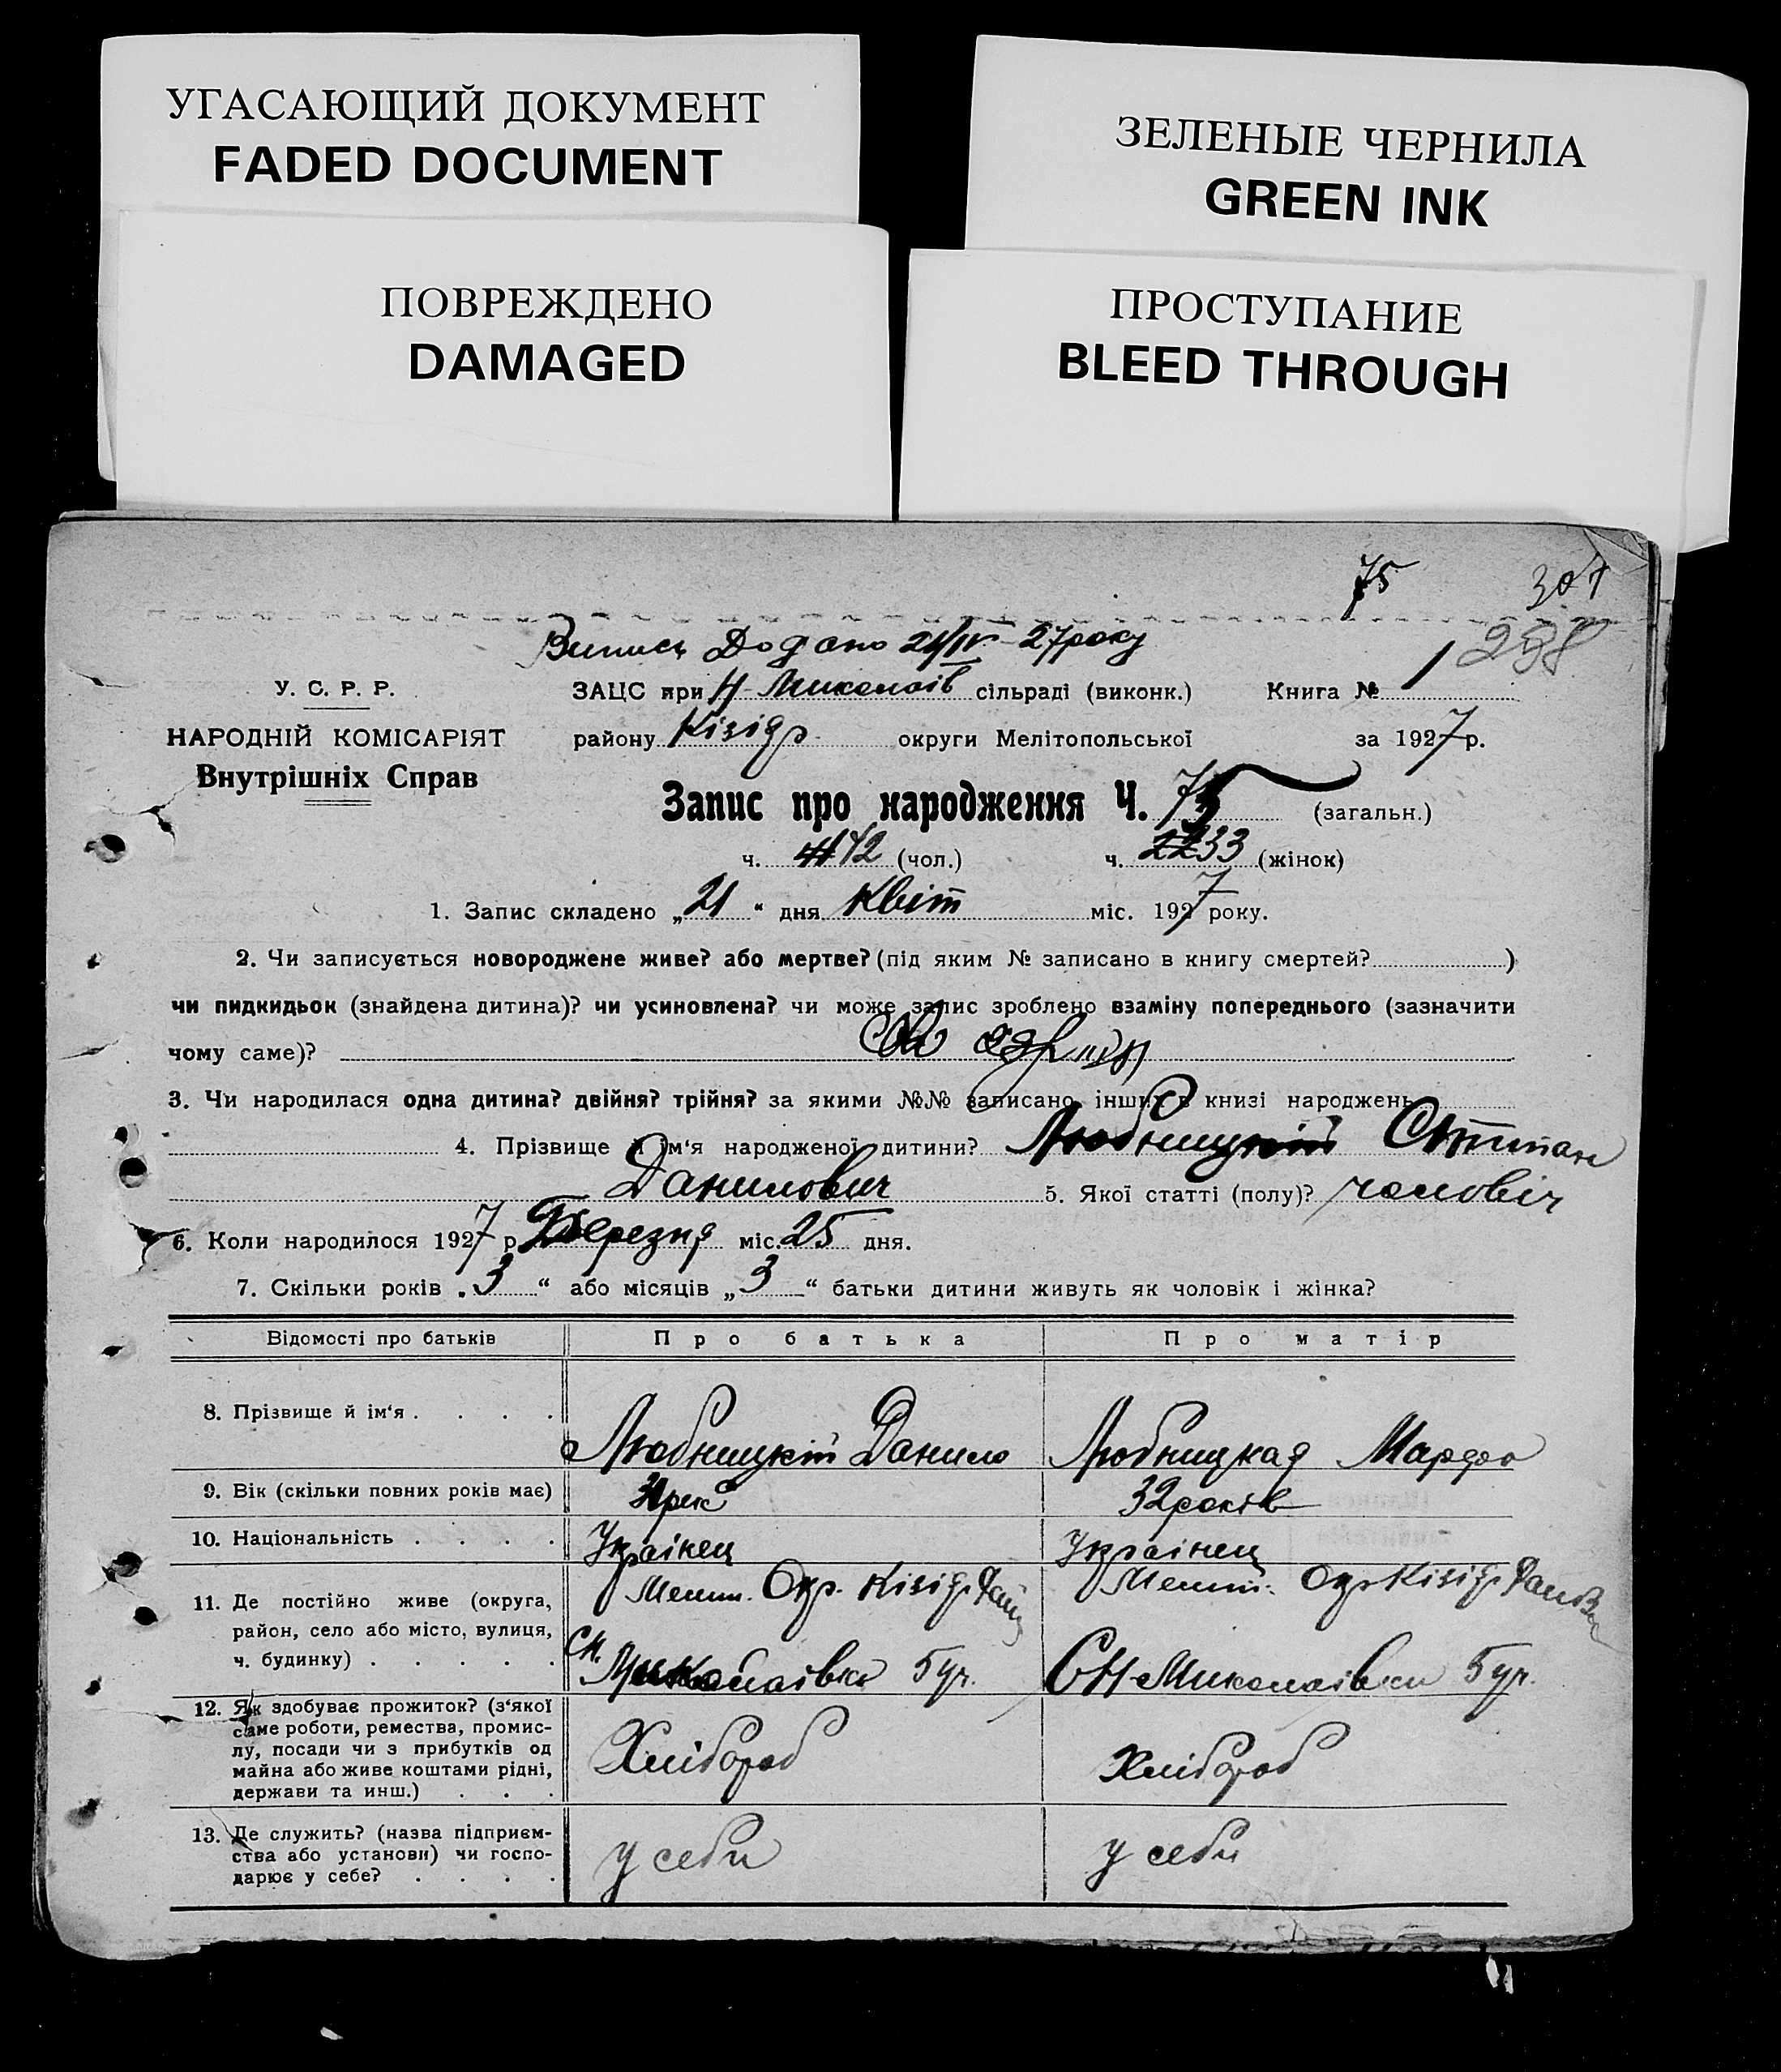 УГАСАЮЩИЙ ДОКУМЕНТ
FADED DOCUMENT
ЗЕЛЕНЫЕ ЧЕРНИЛА
GREEN INK
ПОВРЕЖДЕНО
DAMAGED
ПРОСТУПАНИЕ
BLEED THROUGH
75
Випись Додано 21/IV-27 року
1
У. С. Р. Р.
ЗАЦС при Н-Миколаїв сільраді (виконк.) Книга №
НАРОДНІЙ КОМІСАРІЯТ
Внутрішніх Справ
району Кізідр округи Мелітопольської за 1927 р.
Запис про народження Ч. 75 (загальн.)
ч. 42 (чол.) ч. 33 (жінок)
1. Запис складено „21“ дня Квіт міс. 1927 року.
2. Чи записується новороджене живе? або мертве? (під яким № записано в книгу смертей? )
чи пидкидьок (знайдена дитина)? чи усиновлена? чи може запис зроблено взаміну попереднього (зазначити
чому саме)?
3. Чи народилася одна дитина? двійня? трійня? за якими №№ записано інших в книзі народжень
4. Прізвище й ім‘я народженої дитини? Любницкій Стипан
Данилович 5. Якої статті (полу)? чоловіч
6. Коли народилося 1927 р. Березня міс. 25 дня.
7. Скільки років „3“ або місяців „3“ батьки дитини живуть як чоловік і жінка?
Відомості про батьків Про батька Про матір
8. Прізвище й ім‘я . . . . Любницкій Данило Любницкая Марфа
9. Вік (скільки повних років має) 32 років
10. Національність . . . . Українец Українец
11. Де постійно живе (округа,
район, село або місто, вулиця,
ч. будинку) . . . . .
Мелит. Окр. Кізідр.
СН. Миколаівки
Мелит. Окр Кізідр.
СН-Миколаівки
12. Як здобуває прожиток? (з‘якої
саме роботи, ремества, промис-
лу, посади чи з прибутків од
майна або живе коштами рідні,
держави та инш.) . . .
Хлібороб Хлібороб
13. Де служить? (назва підприєм-
ства або установи) чи госпо-
дарює у себе? . . . .
у себи у себи